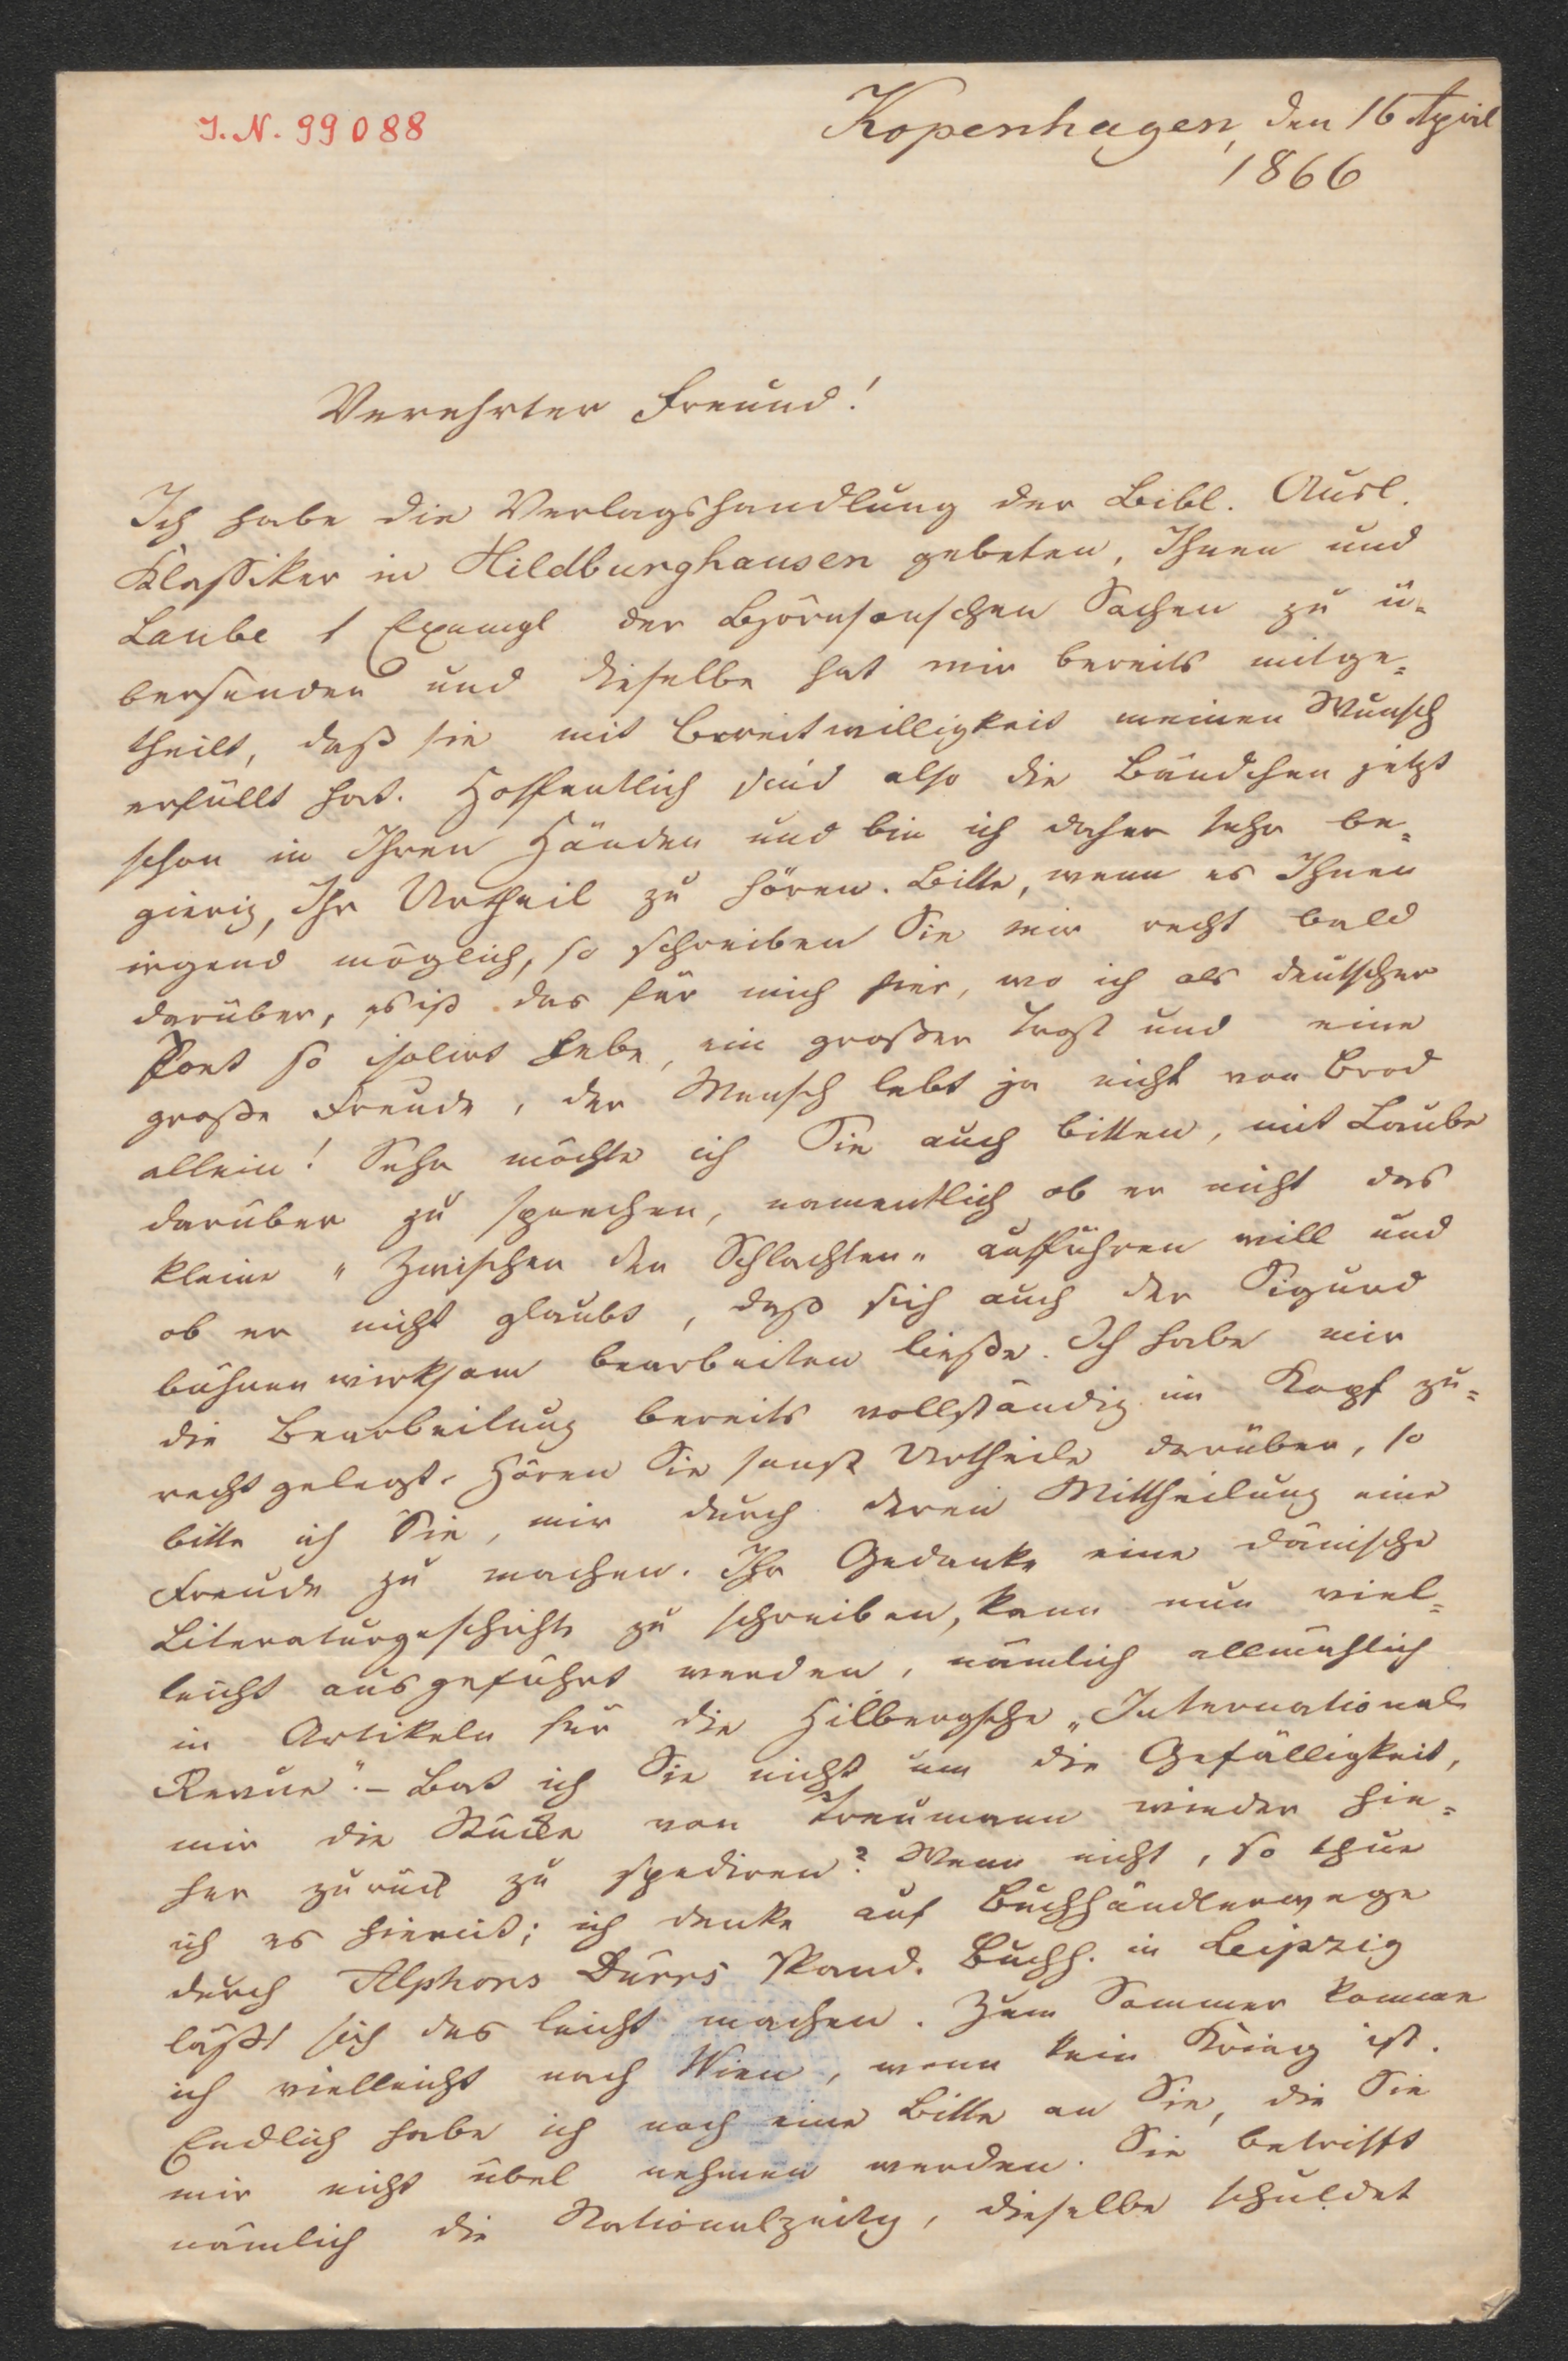 J. N. 99088
Kopenhagen, den 16 April
1866
Verehrter Freund!
Ich habe die Verlagshandlung der Bibl. Ausl.
Klassiker in Hildburghausen gebeten, Ihnen und
Laube 1 Exempl der Björnsonschen Sachen zu ü-
bersenden und dieselbe hat mir bereits mitge-
theilt, daß sie mit Bereitwilligkeit meinen Wunsch
erfüllt hat. Hoffentlich sind also die Bändchen jetzt
schon in Ihren Händen und bin ich daher sehr be-
gierig, Ihr Urtheil zu hören. Bitte, wenn es Ihnen
irgend möglich, so schreiben Sie mir recht bald
darüber, es ist das für mich hier, wo ich als deutscher
Poet so isolirt lebe, ein großer Trost und eine
große Freude, der Mensch lebt ja nicht von Brod
allein! Sehr möchte ich Sie auch bitten, mit Laube
darüber zu sprechen, namentlich ob er nicht das
kleine "Zwischen den Schlachten" aufführen will und
ob er nicht glaubt, daß sich auch der Sigurd
bühnenwirksam bearbeiten ließe. Ich habe mir
die Bearbeitung bereits vollständig im Kopf zu-
recht gelegt. Hören Sie sonst Urtheile darüber, so
bitte ich Sie, mir durch deren Mittheilung eine
Freude zu machen. Ihr Gedanke eine dänische
Literaturgeschichte zu schreiben, kann nun viel-
leicht ausgeführt werden, nämlich allmählich
in Artikeln für die Hilbergsche „Internationale
Revue". – Bat ich Sie nicht um die Gefälligkeit,
mir die Stücke von Treumann wieder hie-
her zurück zu spediren? Wenn nicht, so thue
ich es hiermit; ich denke auf Buchhändlerwege
durch Alphons Dürrs Skand. Buchh. in Leipzig
läßt sich das leicht machen. Zum Sommer komme
ich vielleicht nach Wien, wenn kein Krieg ist.
Endlich habe ich noch eine Bitte an Sie, die Sie
mir nicht übel nehmen werden. Sie betrifft
nämlich die Nationalzeitg, dieselbe schuldet